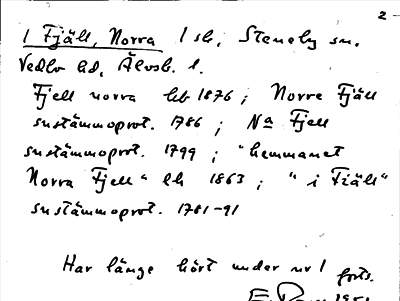 2
1 Fjäll, Norra 1 sk, Steneby sn.
Vedbo hd, Älvsb. l.
Fjell norra hb 1876; Norre Fjäll
snstämmoprot. 1786; Na Fjell
snstämmoprot. 1799; "hemmanet
Norra Fjell" lh 1863; "i Fiäll"
snstämmoprot. 1781-91
Har länge hört under nr 1 forts.